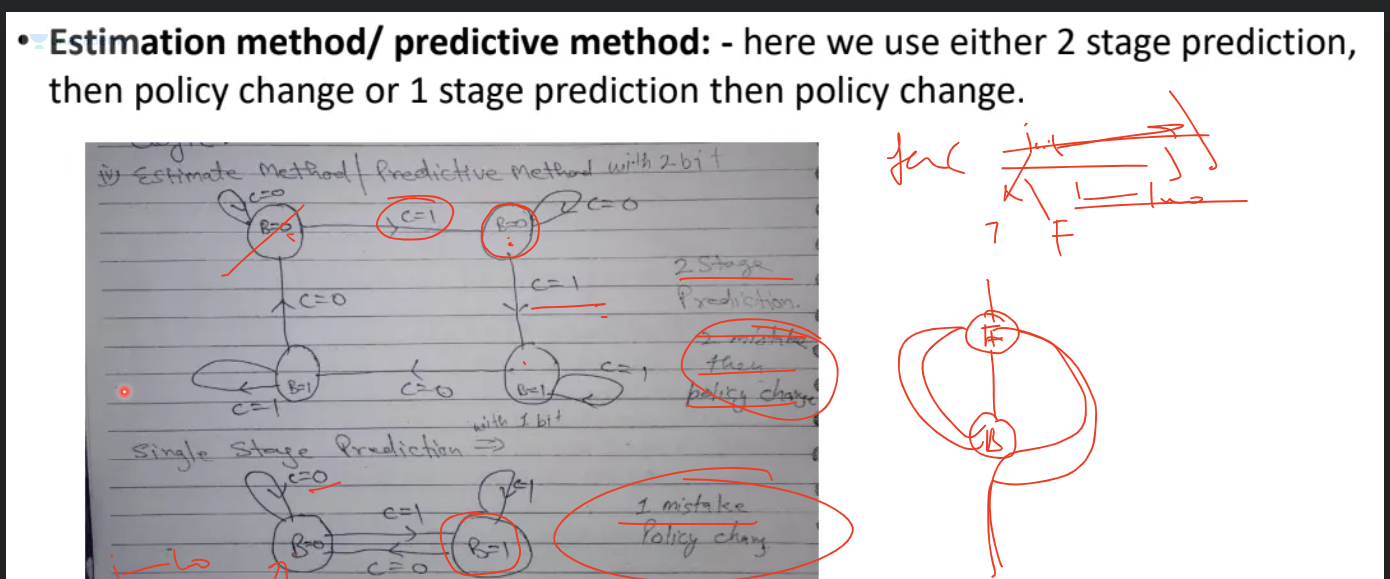 • Estimation method/ predictive method: - here we use either 2 stage prediction,
then policy change or 1 stage prediction then policy change.
Estimate Method/ Predictive Method with 2 bit
C=0
B=0
C=1
B=0
C=0
C=1
2 Stage
Prediction.
C=0
2 mistake
then
policy change
B=1
C=1
C=0
B=1
C=1
with 1 bit
Single Stage Prediction ⇒
C=0
C=1
B=0
C=1
C=0
B=1
1 mistake
Policy chang
F
E
B